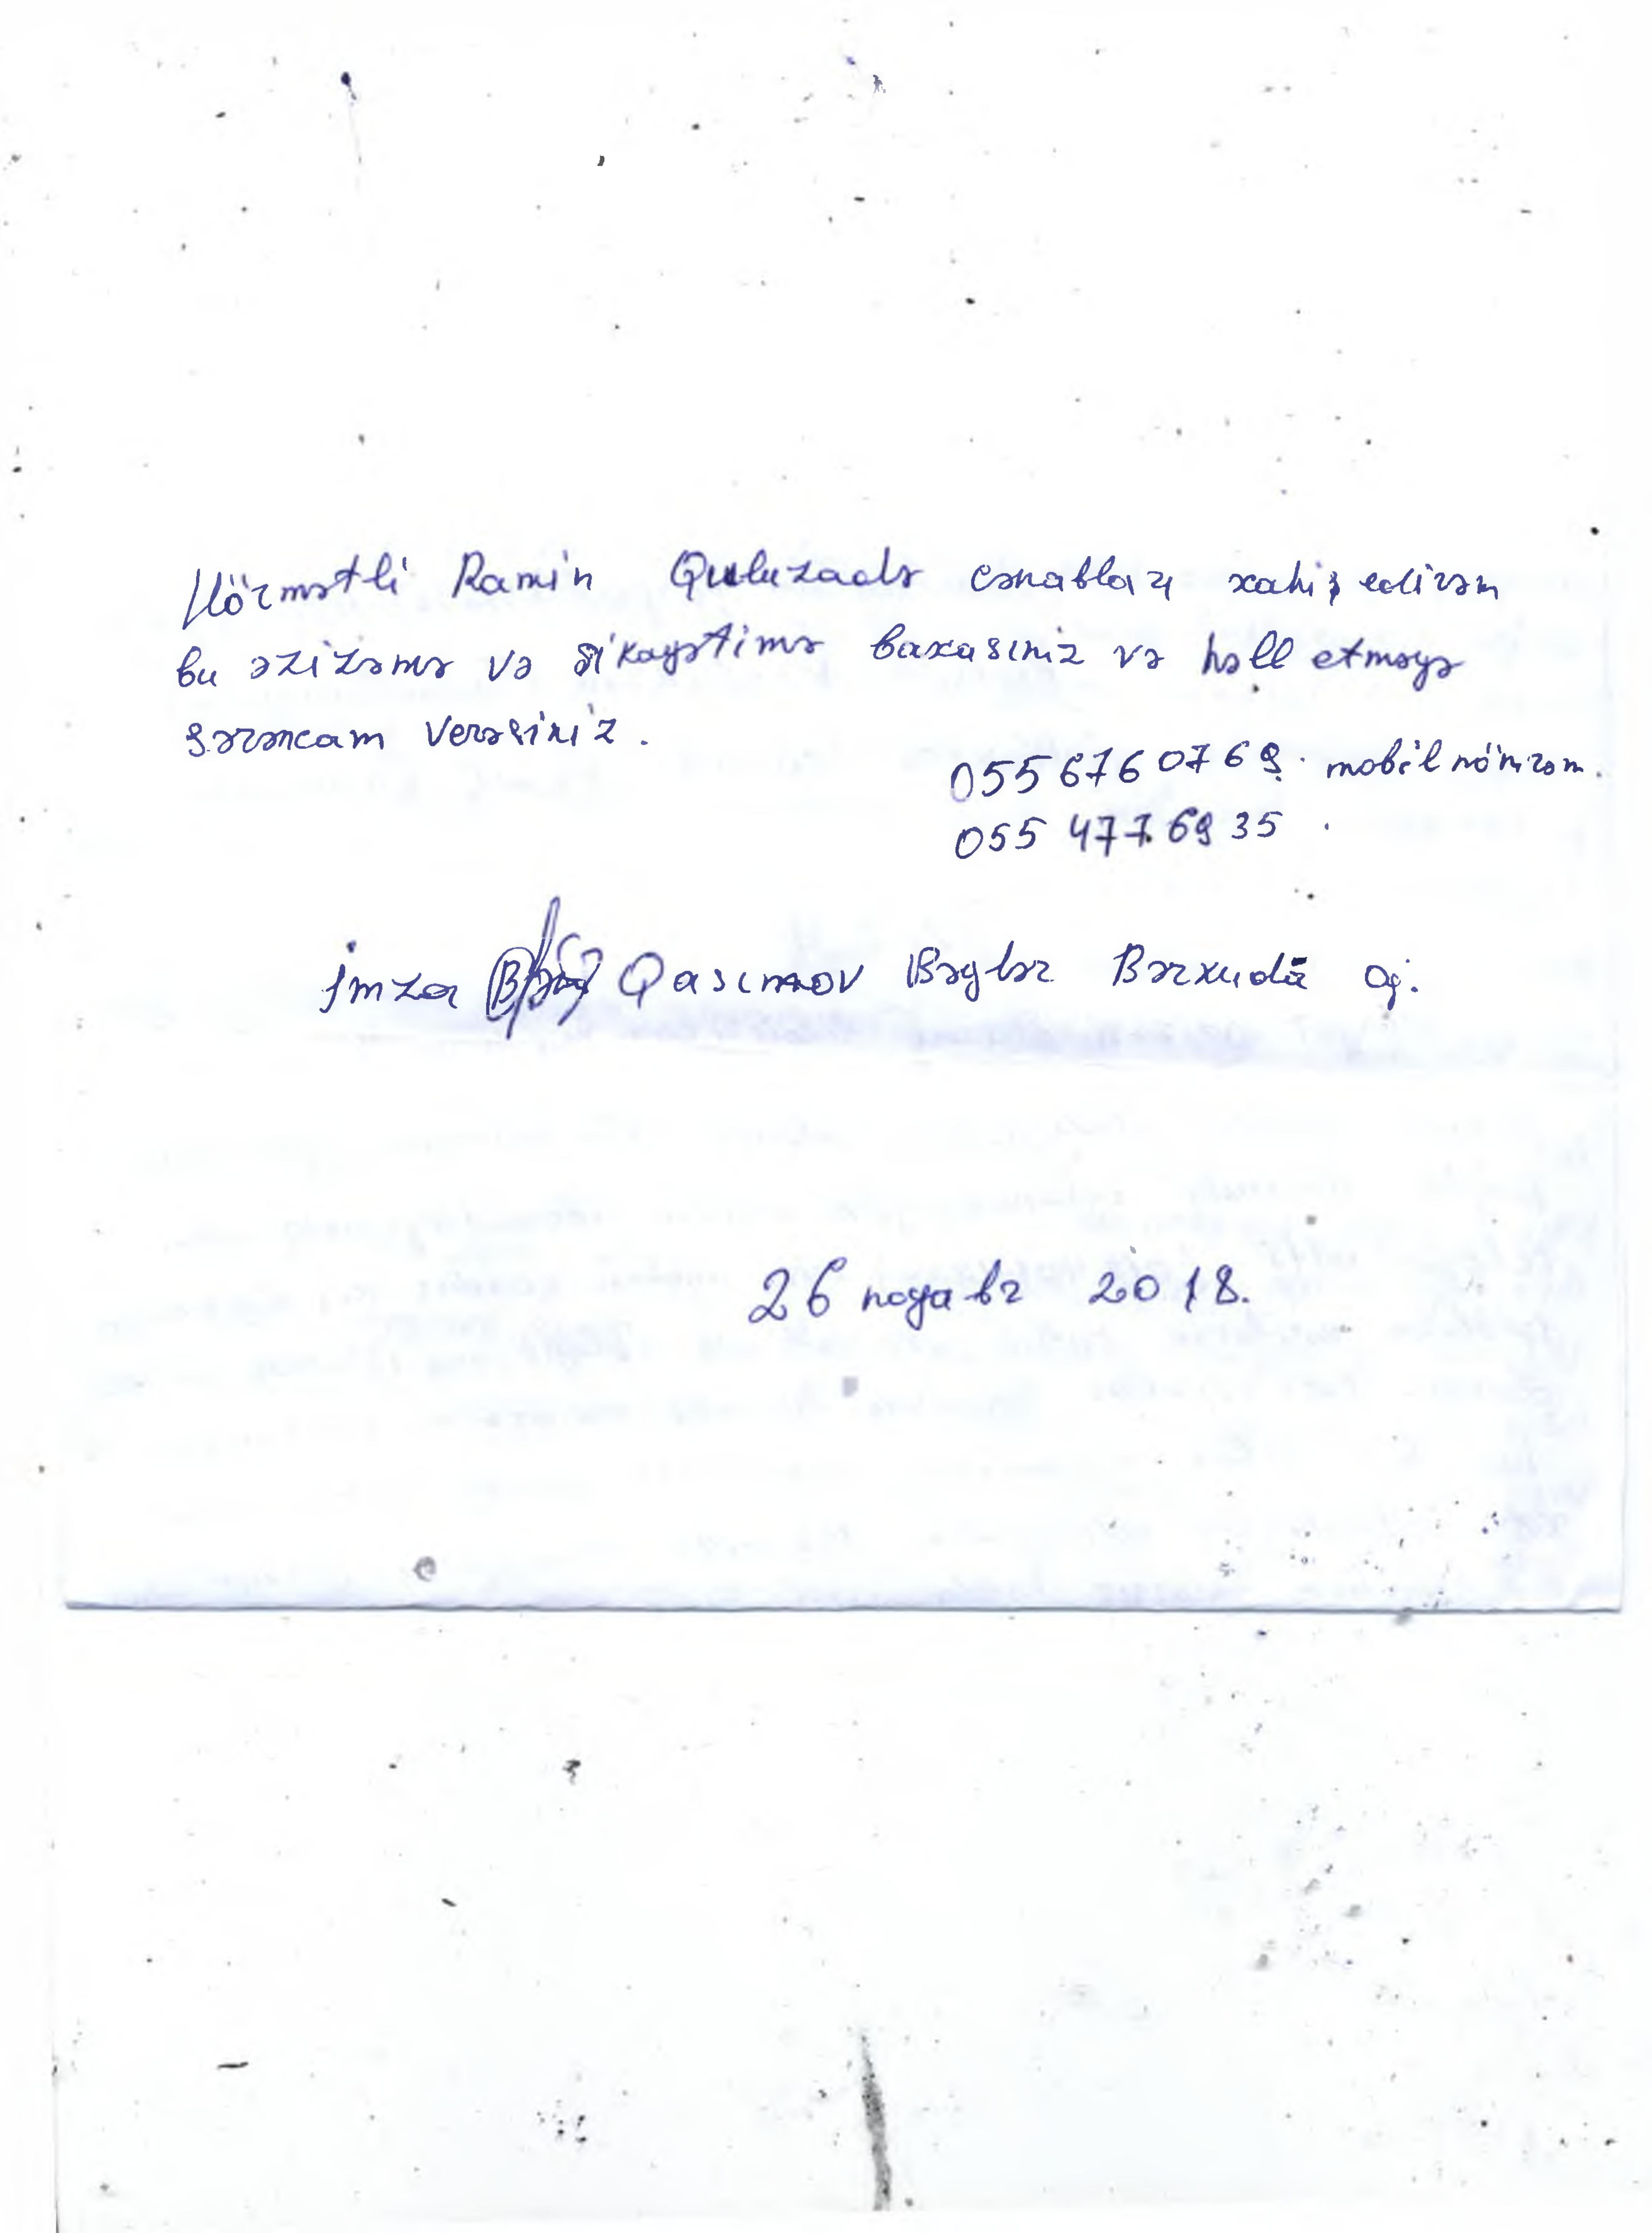 Hörmətli Ramin Quluzadə cənabları xahiş edirəm
bu ərizəmə və şikayətimə baxasınız və həll etməyə
sərəncam verəsiniz.
055 676 07 69. mobil nömrəm.
055 477 69 35.
imza Qasımov Bəylər Bərxudā oğ.
26 noyabr 2018.